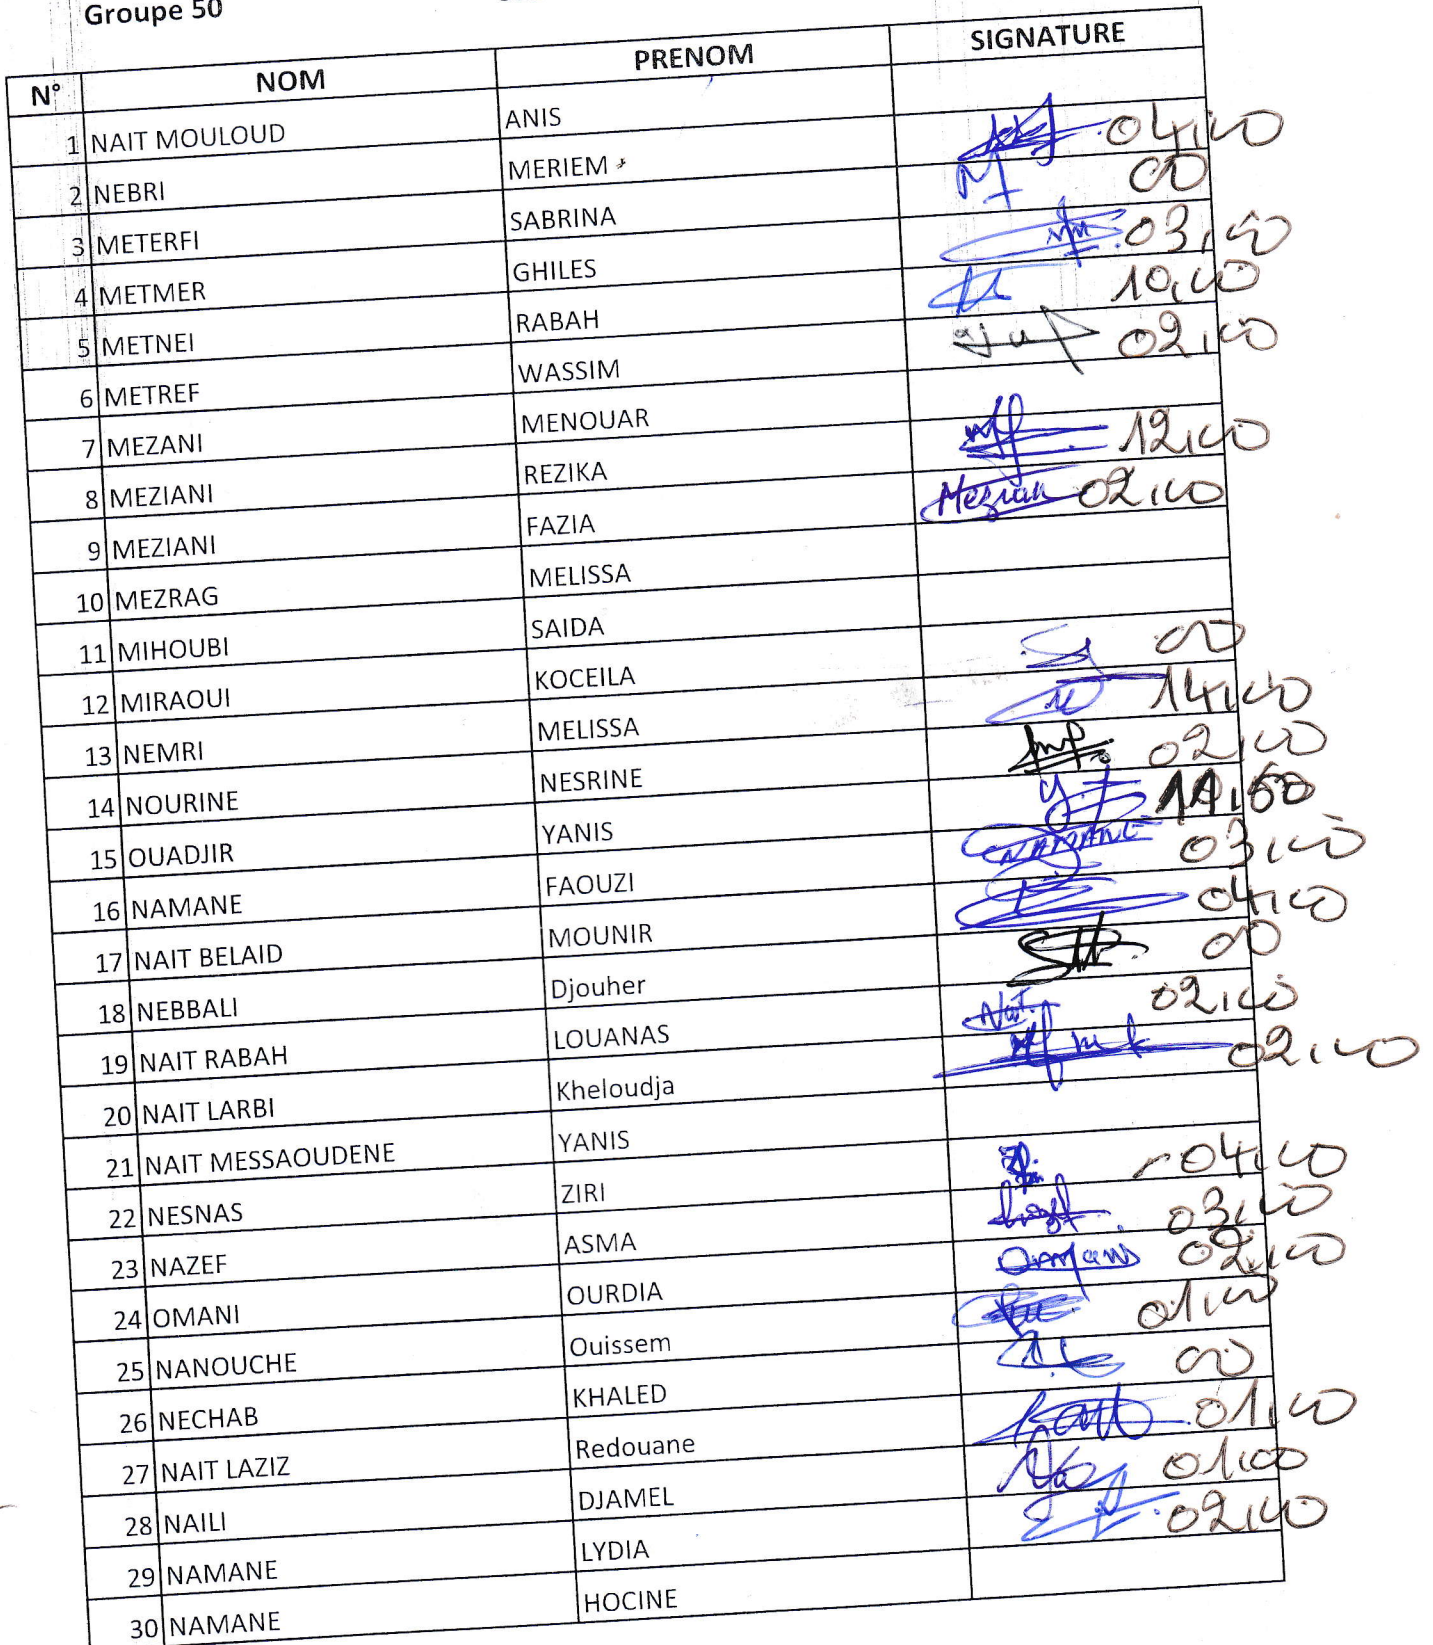 Groupe 50
N° NOM PRENOM SIGNATURE
1 NAIT MOULOUD ANIS
2 NEBRI MERIEM 04,00
3 METERFI SABRINA 00
4 METMER GHILES 03,00
5 METNEI RABAH 10,00
6 METREF WASSIM 02,00
7 MEZANI MENOUAR
8 MEZIANI REZIKA 12,00
9 MEZIANI FAZIA 02,00
10 MEZRAG MELISSA
11 MIHOUBI SAIDA
12 MIRAOUI KOCEILA 00
13 NEMRI MELISSA 14,00
14 NOURINE NESRINE 02,00
15 OUADJIR YANIS 11,50
16 NAMANE FAOUZI NAMANE 03,00
17 NAIT BELAID MOUNIR 04,00
18 NEBBALI Djouher 00
19 NAIT RABAH LOUANAS 02,00
20 NAIT LARBI Kheloudja 02,00
21 NAIT MESSAOUDENE YANIS
22 NESNAS ZIRI 04,00
23 NAZEF ASMA 03,00
24 OMANI OURDIA Omani 02,00
25 NANOUCHE Ouissem 01,00
26 NECHAB KHALED 00
27 NAIT LAZIZ Redouane 01,00
28 NAILI DJAMEL 01,00
29 NAMANE LYDIA 02,00
30 NAMANE HOCINE